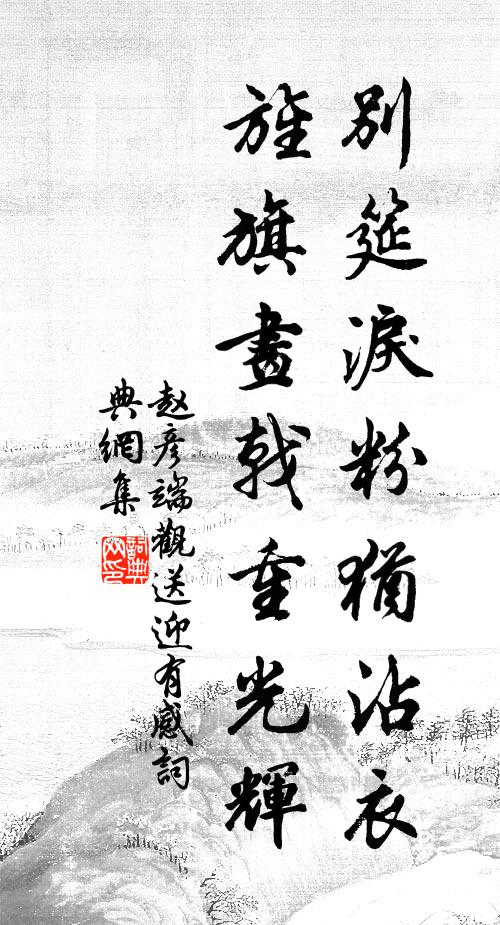 別筵淚粉猶沾衣
旌旗畫戟重光輝
赵彥端觀送迎有感詞
典網集
詞典网印